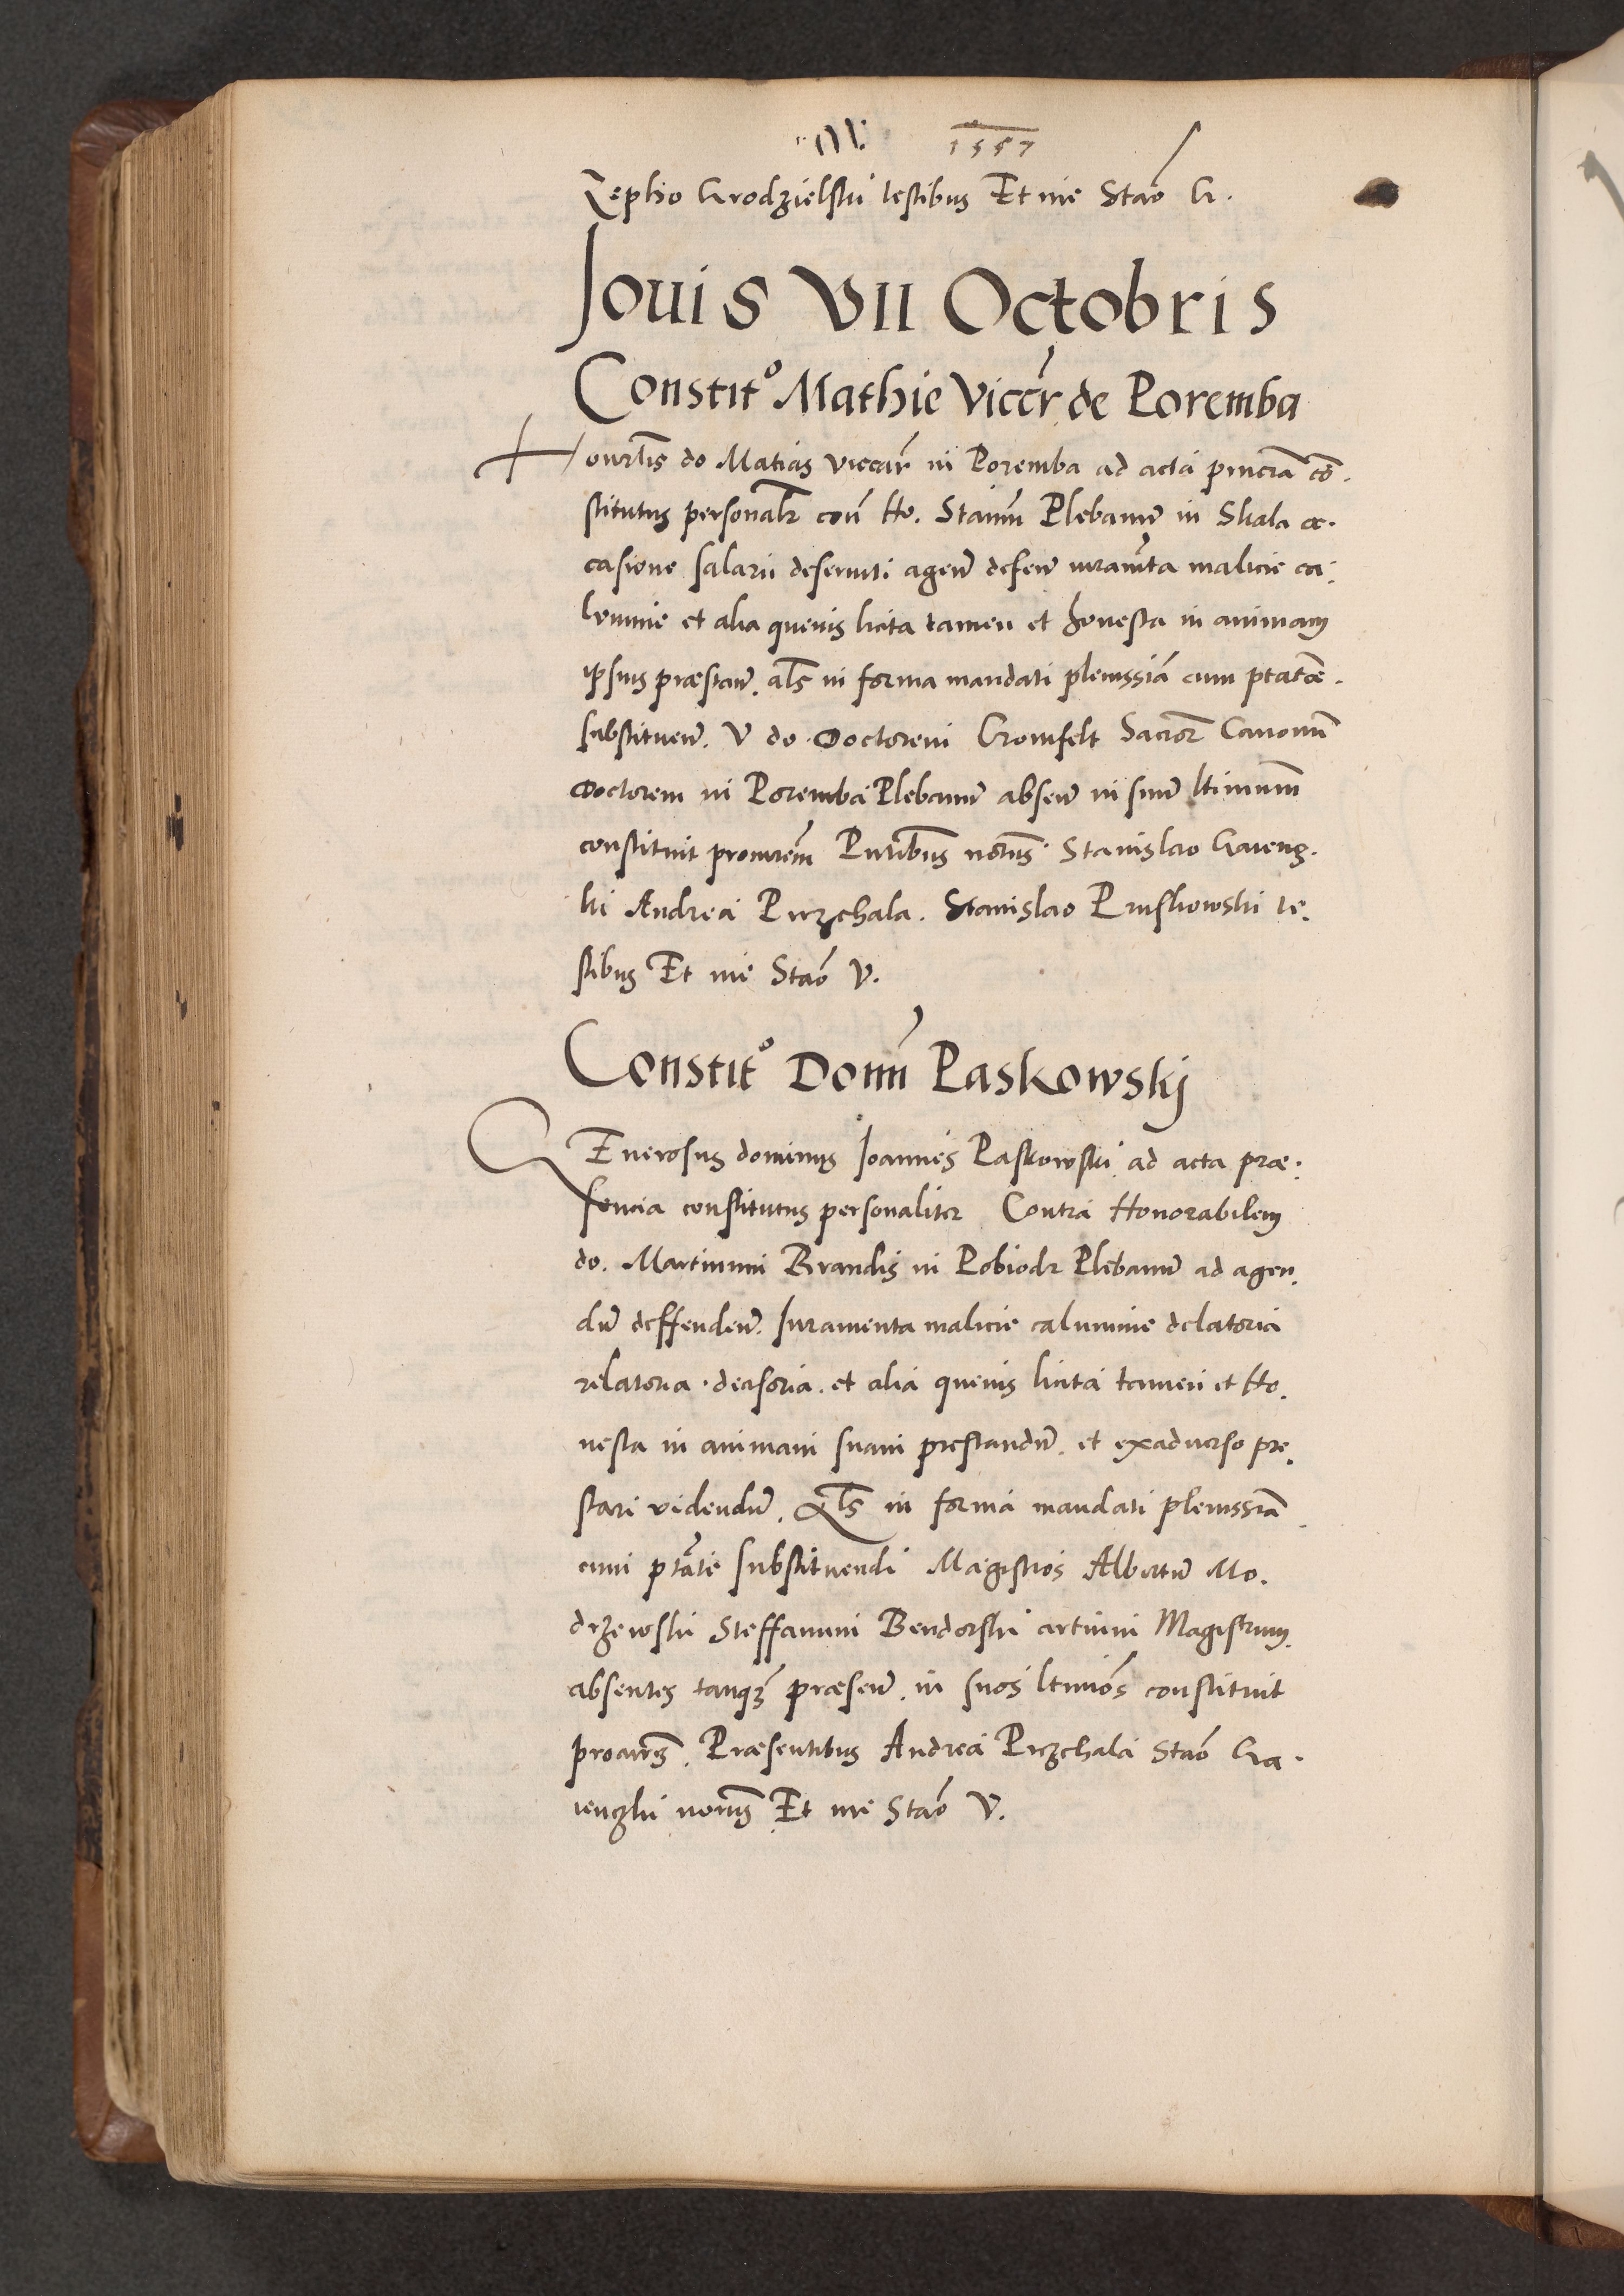 1557
Zephio Grodzielski testibus Et me Stão G.
Jouis VII Octobris
Constit° Mathie Viccr de Poremba
Honorlis do Matias viccar in Poremba ad acta pncia cō.
stitutus personalr con Ho. Stanm Plebanum in Skala oc.
casione salarii deseruiti agen defen iuramta malicie ca.
lumnie et alia queuis licita tamen et honesta in animam
ipsius præstan. als in forma mandati plenissia cum ptatæ.
substituen. V do. Doctorem Cromfelt Sacror Canonum
Doctorem in Poremba Plebanum absen in suum ltimum
constituit procurem Pntibus notus Stanislao Gaieng.
ki Andrea Przchala. Stanislao Pruskowski te.
stibus Et me Stão V.
Constit° Domi Paskowskj
GEnerosus dominus Joannes Paskowski ad acta præ.
sencia constitutus personaliter Contra Honorabilem
do. Martinum Brandis in Pobiodr Plebanum ad agen.
dum deffenden. Juramenta malicie calumnie delatoria
relatoria. decisoria. et alia queuis licita tamen et Ho.
nesta in animam suam prestandum. et exaduerso pre.
stari videndum. Als in forma mandati plenissia
cum ptate substituendi Magistros Albertum Mo.
drzewski Steffanum Bendorski artium Magistrum
absentes tanq3 præsen. in suos ltimos constituit
procurs. Præsentibus Andrea Przchala Stão Ga.
iengki notus Et me Stão V.